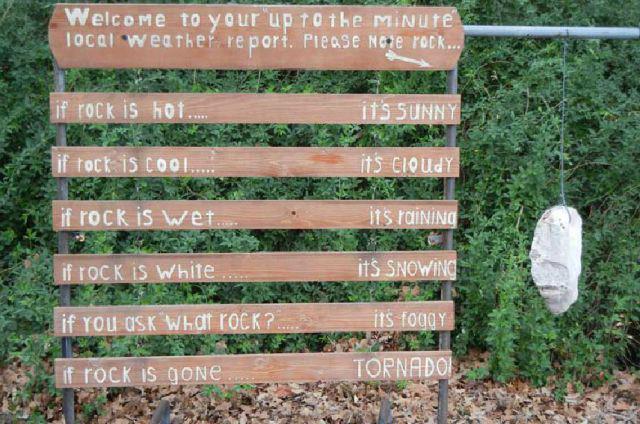 Welcome to your "up to the minute
local weather report. Please Note rock...
if rock is hot..... it's SUNNY
if rock is cool..... it's cloudy
if rock is wet..... it's raining
if rock is white ..... it's SNOWING
if You ask "what rock?"..... it's foggy
if rock is gone ..... TORNADO!